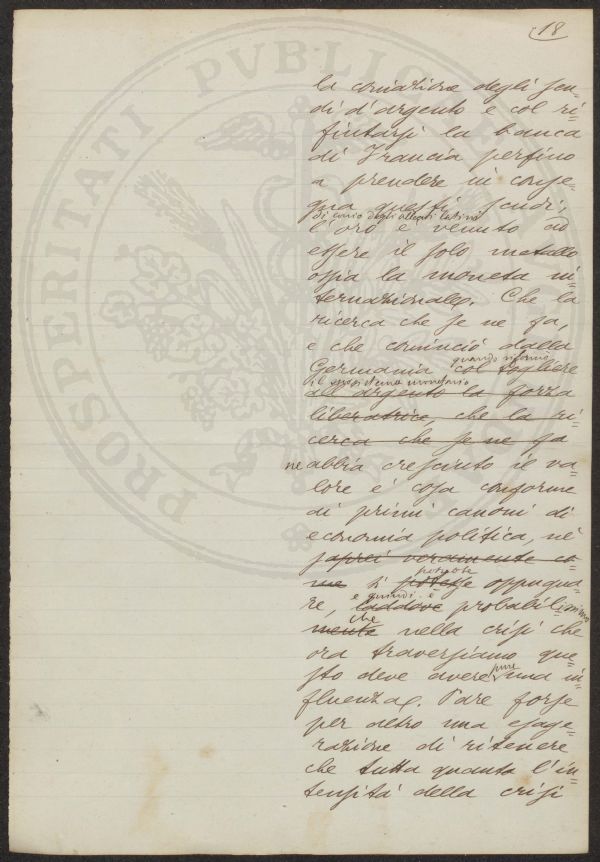 18
PROSPERITATI PVBLICAE
la coniazione degli scu=
di d'argento e col ri=
fiutarsi la banca
di Francia perfino
a prendere in conse=
gna questi scudi,
di conio degli alleati latini
l'oro è venuto ad
essere il solo metallo
ossia la moneta in=
ternazionale. Che la
ricerca che se ne fa,
e che cominciò dalla
quando riformò
Germania col togliere
il suo sistema monetario
all'argento la forza
liberatrice, che la ri=
cerca che se ne fa
ne abbia cresciuto il va=
lore è cosa conforme
ai primi canoni di
economia politica, nè
saprei veramente co=
potrebbe
me si potesse oppugna=
e quindi è
re, laddove probabilissimo
che
mente nella crisi che
ora traversiamo que=
pure
sto deve avere una in=
fluenza. Pare forse
per altro una esage=
razione di ritenere
che tutta quanta l'in=
tensità della crisi